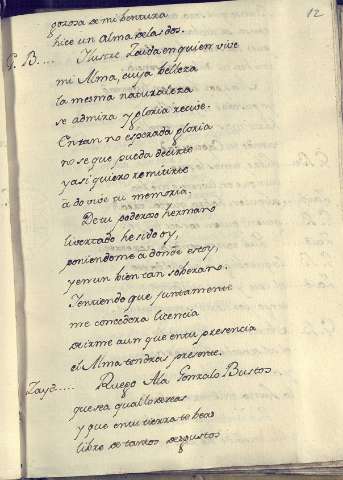 12
gozosa de mi bentura
hice un alma delas dos.
G. B.... Ilustre Zaida en quien vive
mi Alma, cuya belleza
la mesma naturaleza
se admira y gloria recive.
En tan no esperada gloria
no se que pueda decirte
y asi quiero remitirte
a do vive tu memoria.
De tu poderoso hermano
livertado he sido oy,
poniendome a donde estoy,
y en un bien tan soberano.
Teniendo que juntamente
me concediera licencia
de irme aun que en tu presencia
el Alma tendras presente.
Zayd..... Ruego Ala Gonzalo Bustos
que sea qual lo deseas
y que en tu tierra te veas
libre de tantos disgustos